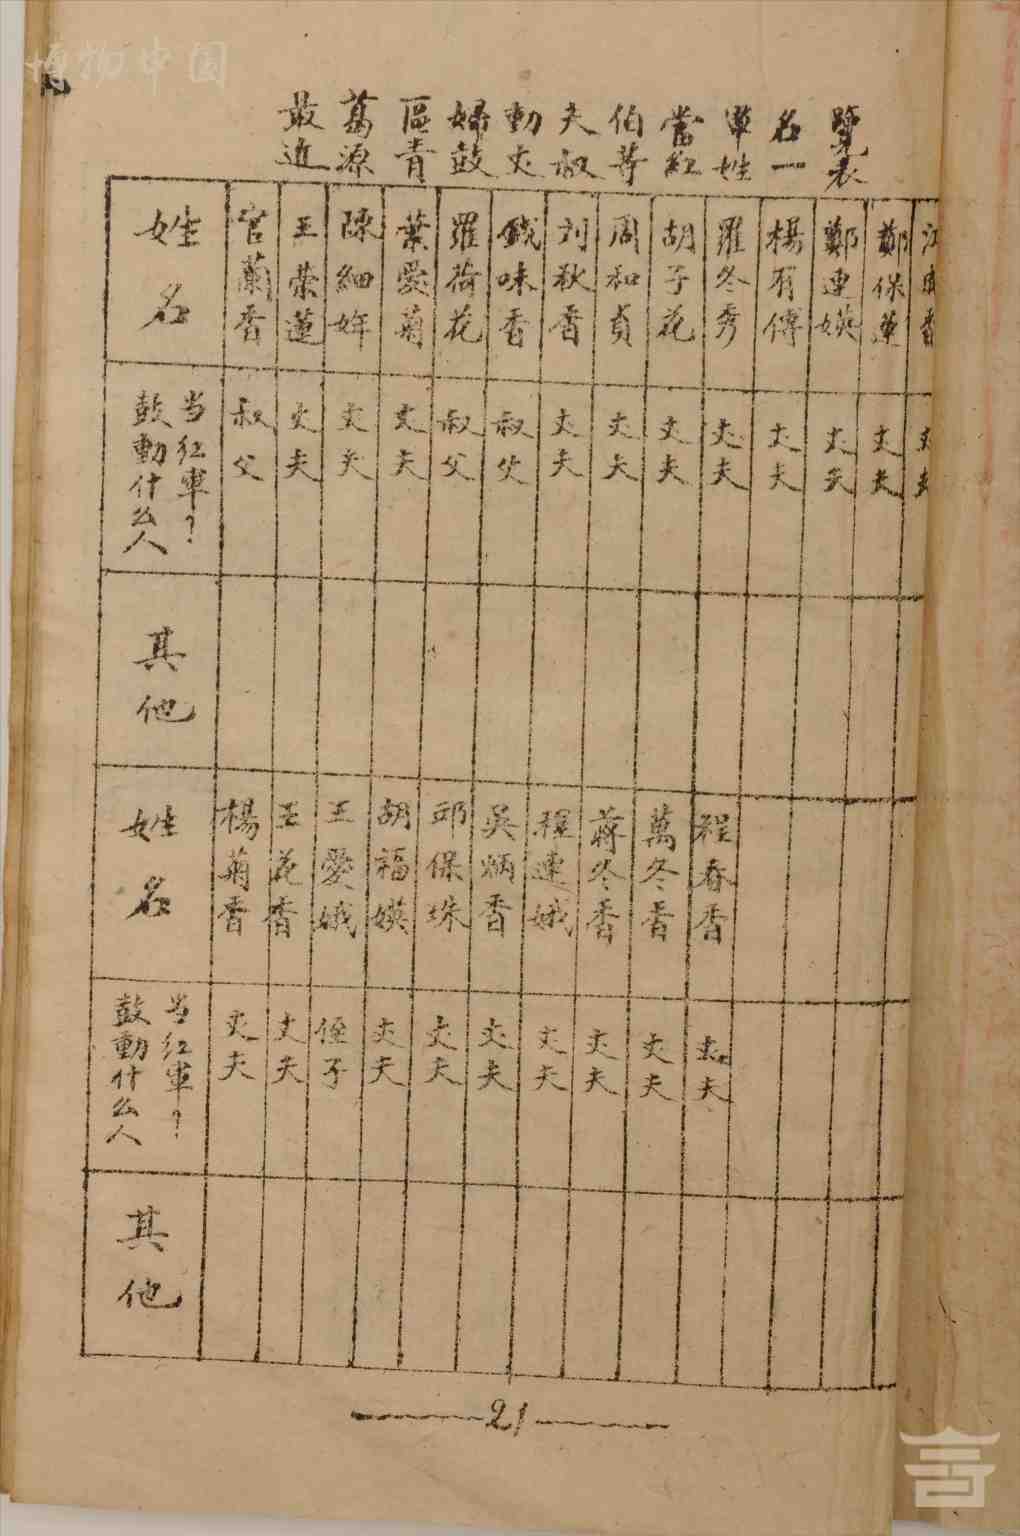 博物中国
最近葛源區青婦鼓動丈夫叔伯等當紅軍姓名一覽表
姓名 官蘭香 王荣蓮 陳細姩 葉愛菊 羅荷花 錢味香 刘秋香 周和貞 胡子花 羅冬秀 楊有傳 鄭連媖 鄭保蓮
鼓動什么人当红軍? 叔父 丈夫 丈夫 丈夫 叔父 叔父 丈夫 丈夫 丈夫 丈夫 丈夫 丈夫 丈夫 丈夫
其他
姓名 楊菊香 王花香 王愛娥 胡福媖 邱保珠 吳炳香 程連娥 蔣冬香 萬冬香 程春香
鼓動什么人当红軍? 丈夫 丈夫 侄子 丈夫 丈夫 丈夫 丈夫 丈夫 丈夫 丈夫
其他
21